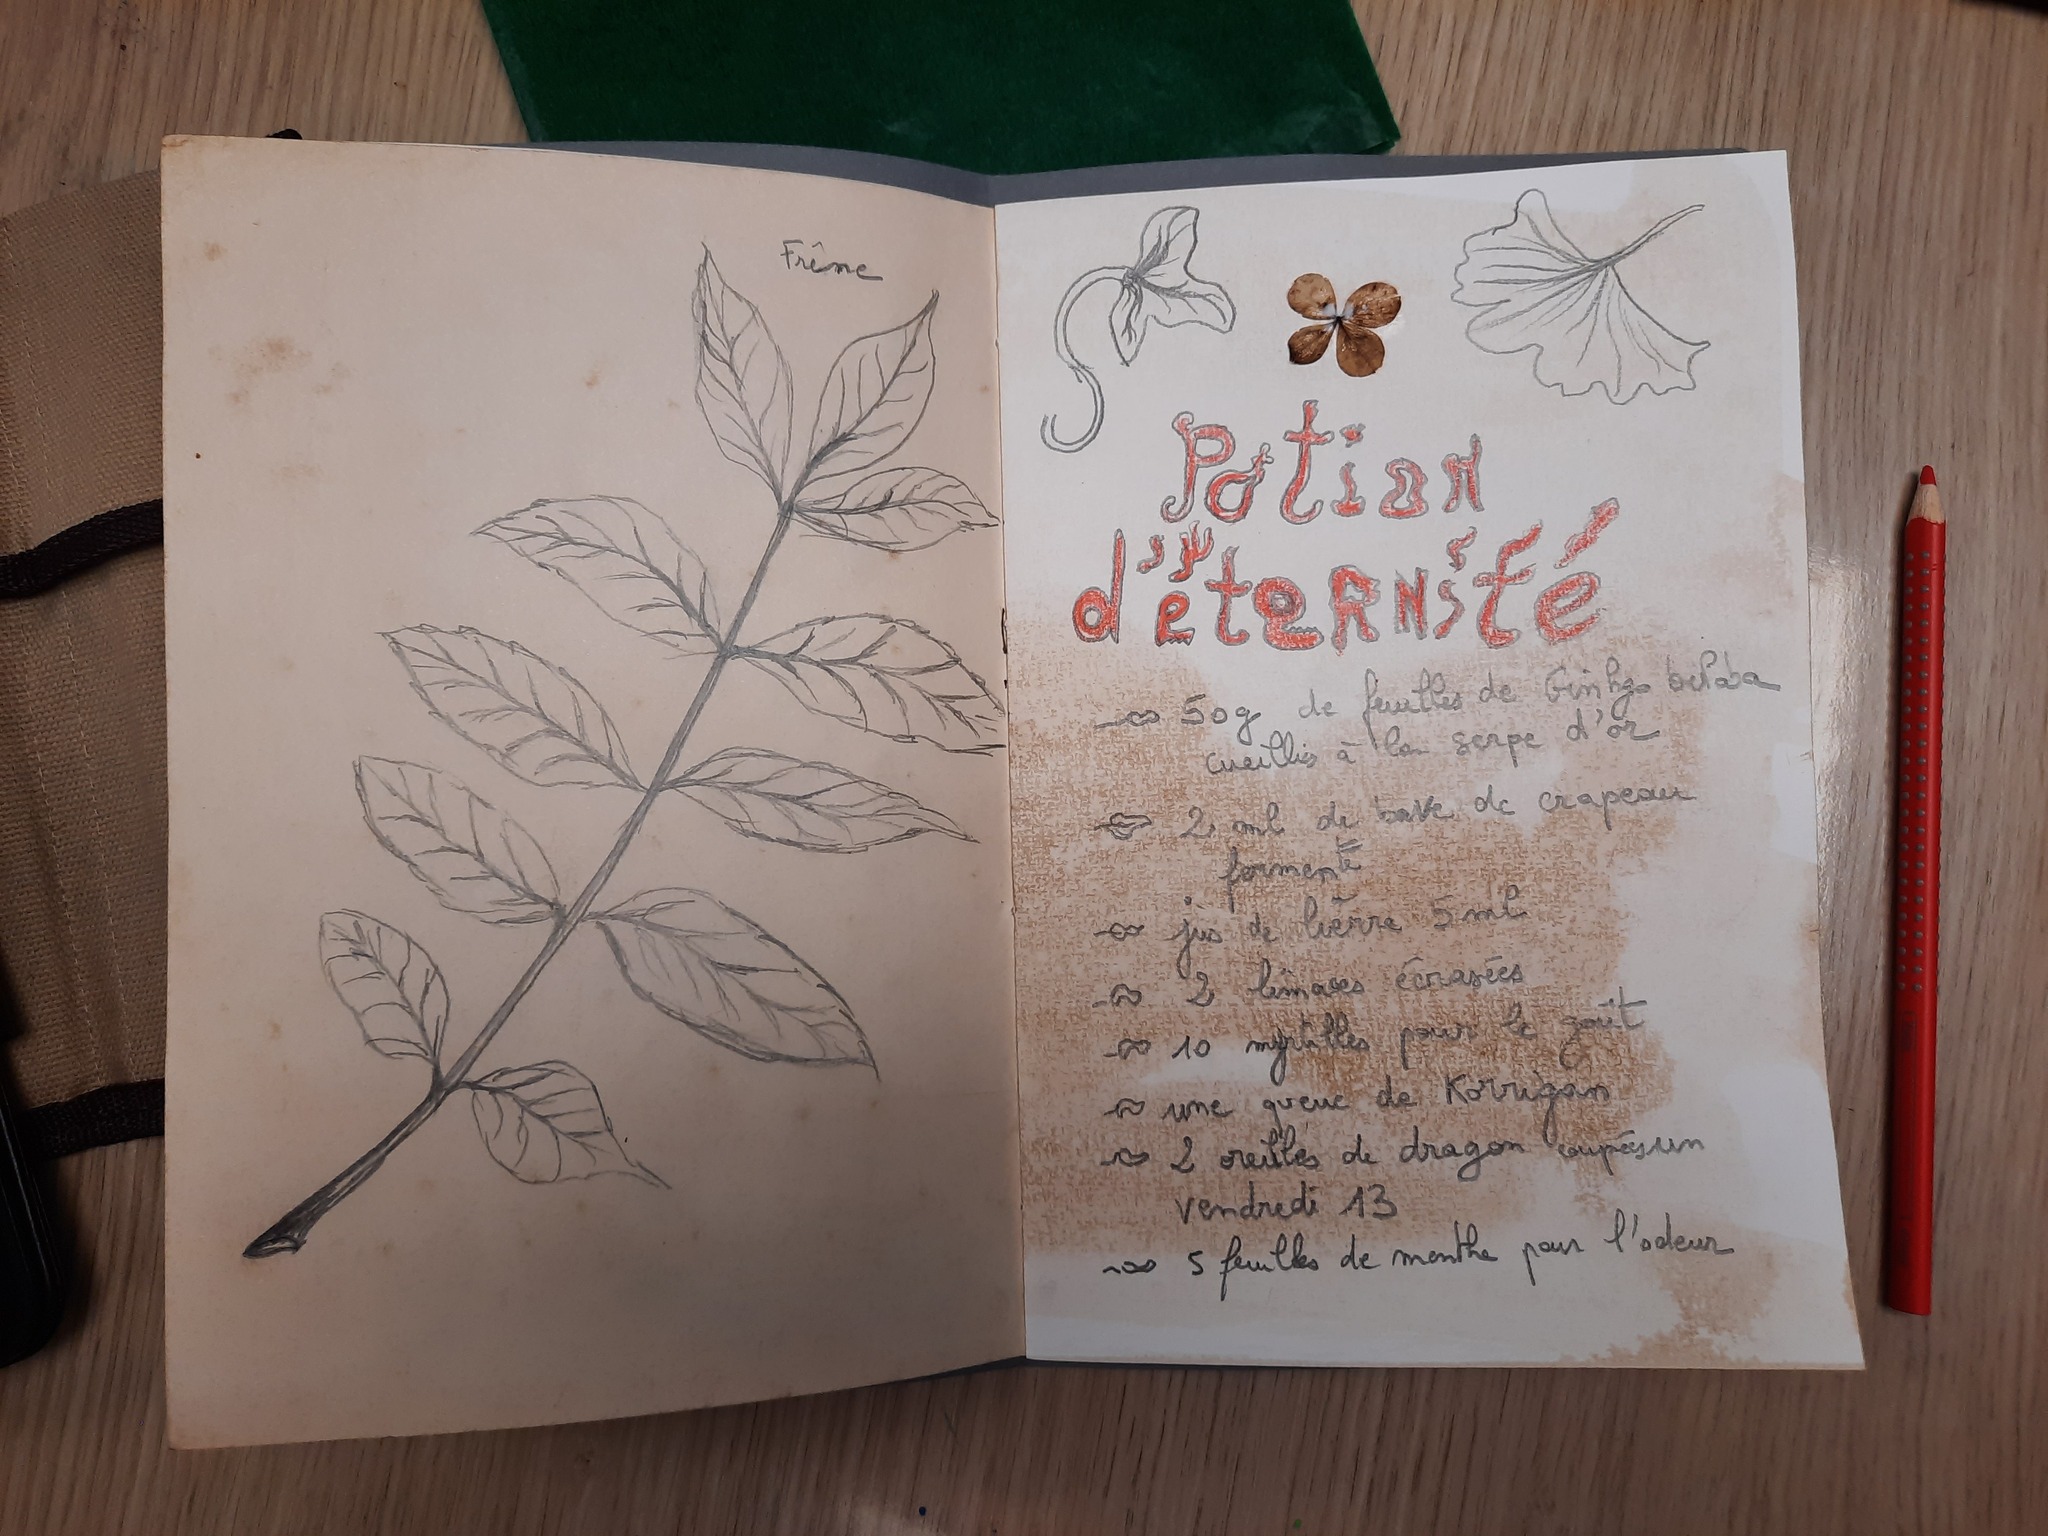 Frêne
Potion
d'éternité
50g de feuilles de Ginkgo biloba
cueillies à la serpe d'or
2 ml de bave de crapeau
fermenté
jus de lierre 5 ml
2 limaces écrasées
10 myrtilles pour le goût
une queue de Korrigan
2 oreilles de dragon coupées un
vendredi 13
5 feuilles de menthe pour l'odeur